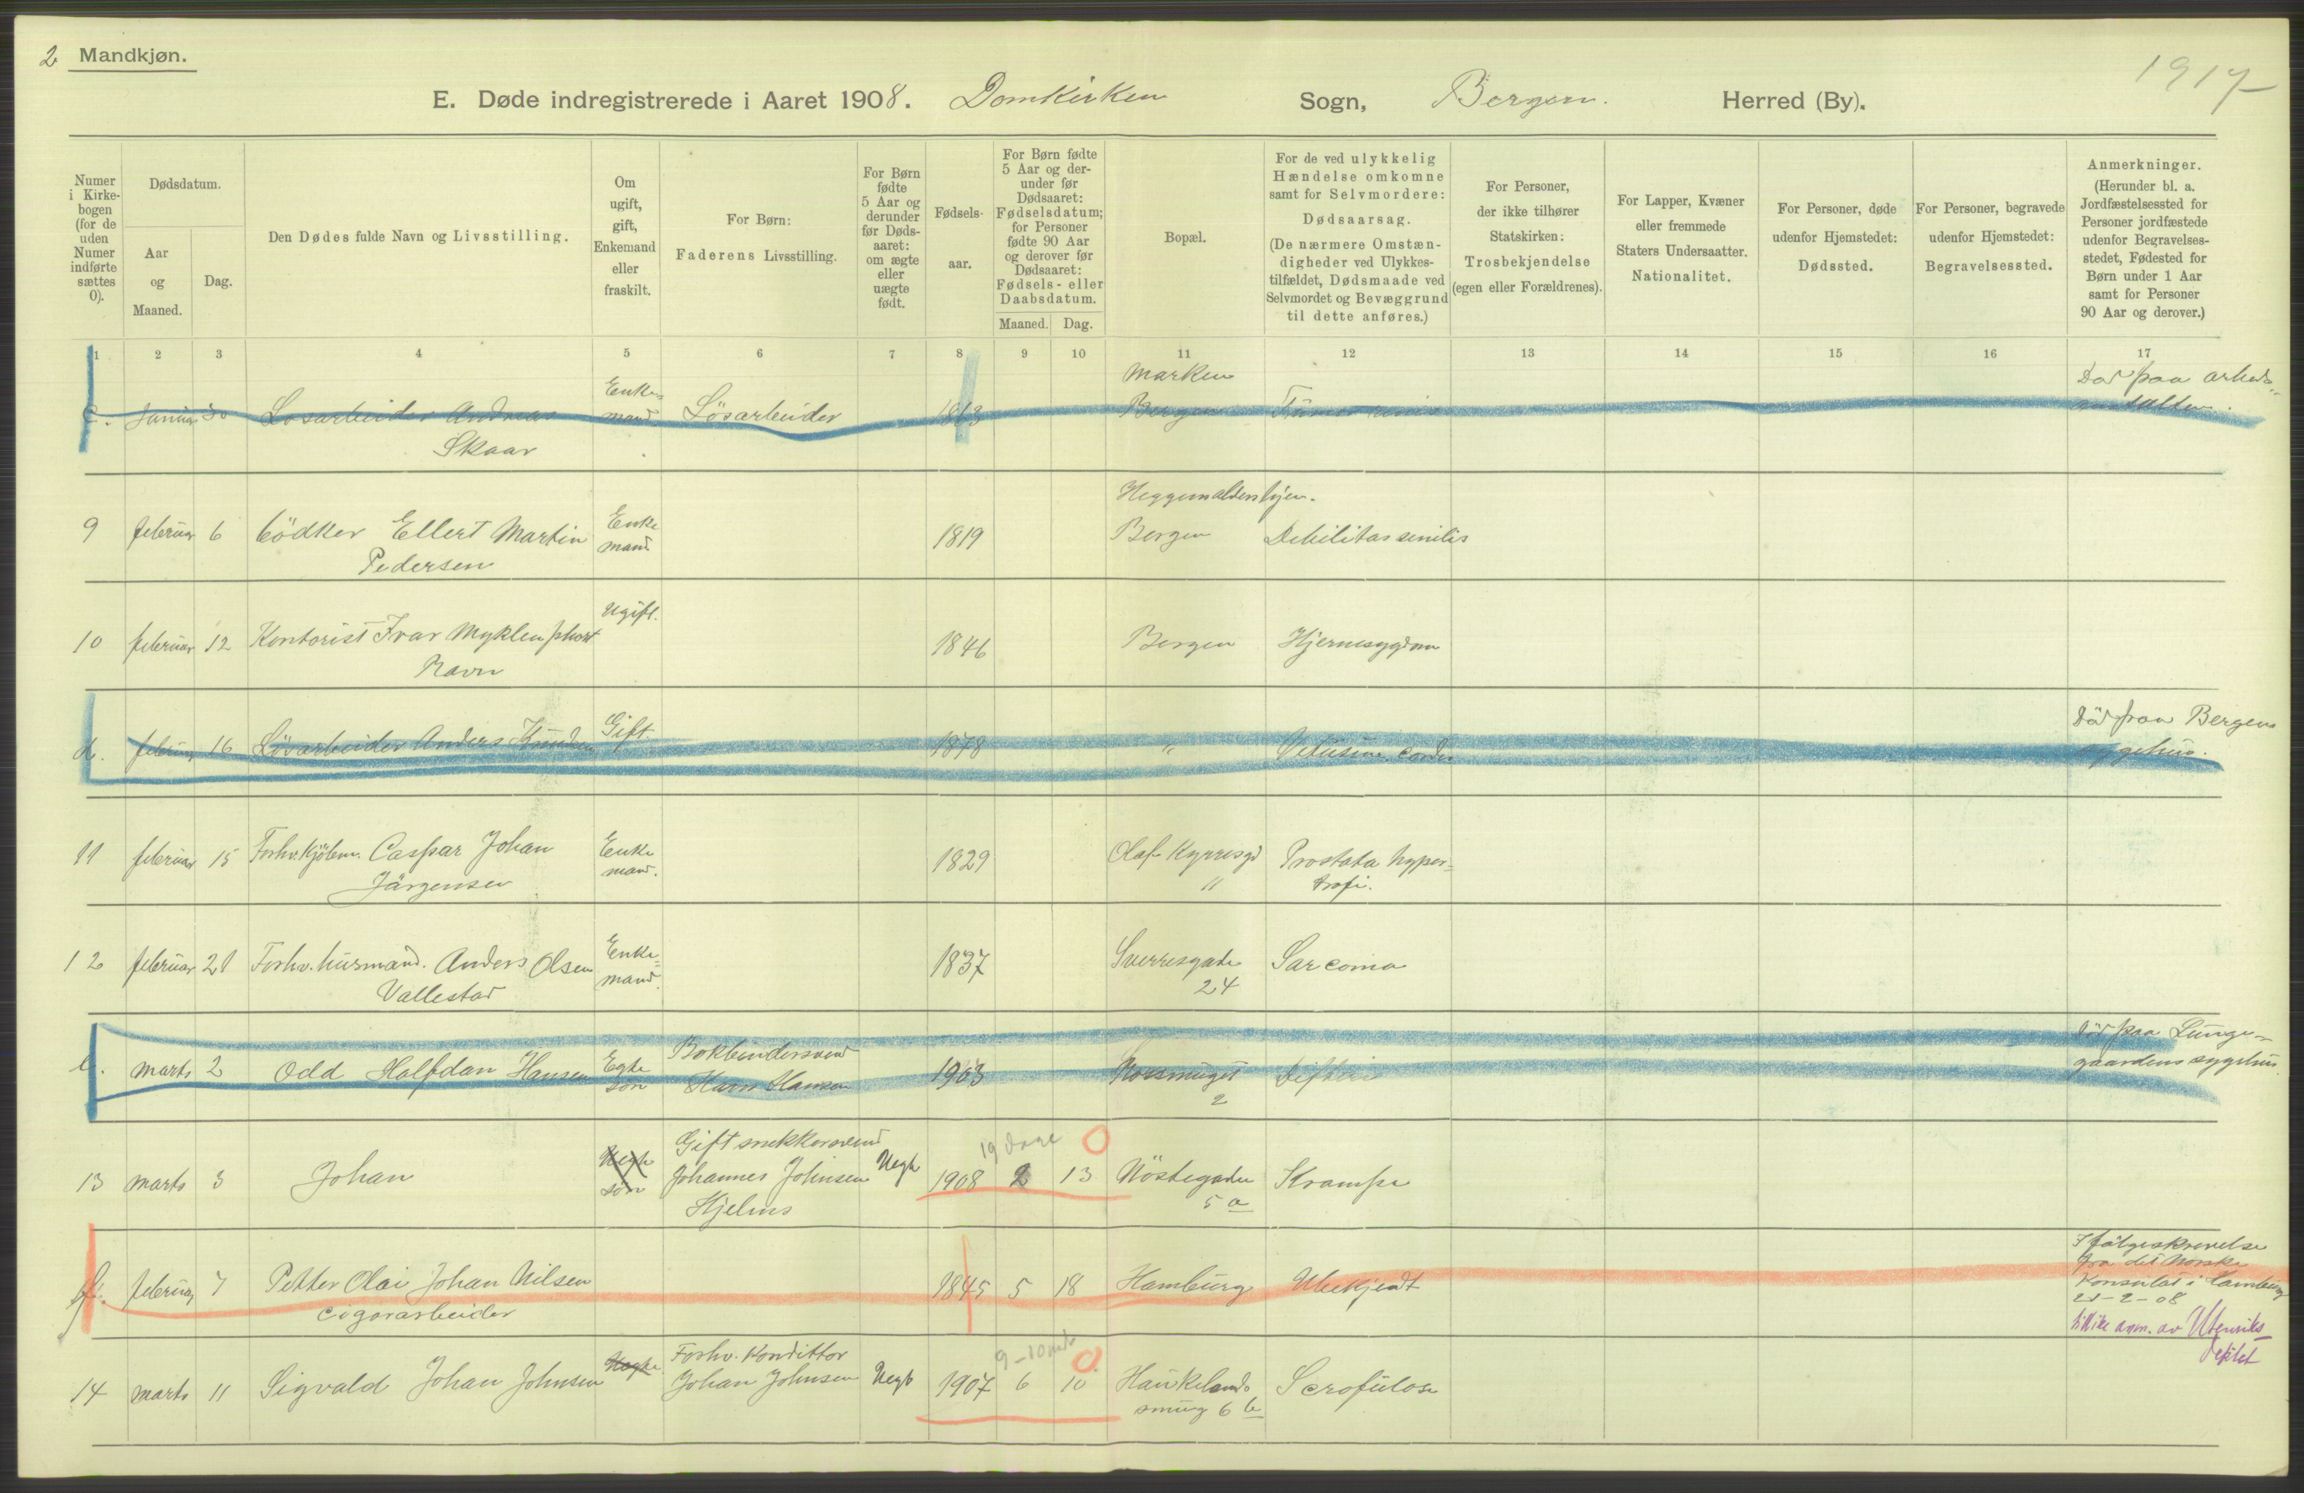 2 Mandkjøn.
1917
E. Døde indregistrerede i Aaret 1908. Domkirken Sogn, Bergen. Herred (By).
Numer i Kirke-bogen (for de uden Numer indførte sættes 0).
Dødsdatum.
Aar og Maaned.
Dag.
Den Dødes fulde Navn og Livsstilling.
Om ugift, gift, Enkemand eller fraskilt.
For Børn: Faderens Livsstilling.
For Børn fødte 5 Aar og derunder før Døds-aaret: om ægte eller uægte født.
Fødsels-aar.
For Børn fødte 5 Aar og der-under før Dødsaaret: Fødselsdatum; for Personer fødte 90 Aar og derover før Dødsaaret: Fødsels- eller Daabsdatum.
Maaned. Dag.
Bopæl.
For de ved ulykkelig Hændelse omkomne samt for Selvmordere: Dødsaarsag. (De nærmere Omstæn-digheder ved Ulykkes-tilfældet, Dødsmaade ved Selvmordet og Bevæggrund til dette anføres.)
For Personer, der ikke tilhører Statskirken: Trosbekjendelse (egen eller Forældrenes).
For Lapper, Kvæner eller fremmede Staters Undersaatter. Nationalitet.
For Personer, døde udenfor Hjemstedet: Dødssted.
For Personer, begravede udenfor Hjemstedet: Begravelsessted.
Anmerkninger. (Herunder bl. a. Jordfæstelsessted for Personer jordfæstede udenfor Begravelses-stedet, Fødested for Børn under 1 Aar samt for Personer 90 Aar og derover.)
1 2 3 4 5 6 7 8 9 10 11 12 13 14 15 16 17
Marken Død paa arbeds-
c. Januar 30 Løsarbeider Andreas Enke-mand Lösarbeider 1863 Bergen Tumor anstalten.
Skaar
Heggernaldershjen.
9 februar 6 bödker Ellert Martin Enke mand 1819 Bergen Debilitas senilis
Pedersen
10 februar 12 Kontorist Ivar Myklenphort Ugift. 1846 Bergen Hjernesygdom
Ravn
Död paa Bergens
d. februar 16 Lösarbeider Anders Knudsen Gift 1878 " cordis sygehus.
11 februar 15 Forhv. Kjölem. Caspar Johan Enke mand. 1829 Olaf Kyrresgd Prostata hyper-
Järgensen " trofi.
12 februar 21 Forhv. husmand. Anders Olsen Enke-mand. 1837 Sverresgade Sarcoma
Vallestad 24
Bokbindersvend Död paa Lunge-
e. marts 2 Odd Halfdan Hansen Egte søn Hans Hansen 1903 Korsmuget Difteri gaardens sygehus.
2
Gift snekkersvend 19 dage
13 marts 3 Johan Uegte søn Johannes Johnsen Uegt 1908 2 13 Nöstegaden Krampe
Hjelms 5 a
Ifölge skrivelse
fra det Norske
f. februar 7 Petter Olai Johan Nilsen 1845 5 18 Hamburg Ubekjendt Konsulat i Hamburg
cigararbeider 21-2-08
tillike anm. av Utenriks-
deptet
Forhv. Konditor 9-10 mdr
14 marts 11 Sigvald Johan Johnsen Uegte Johan Johnsen Uegt 1907 6 10 Haukelands- Scrofulose
smug 6 b